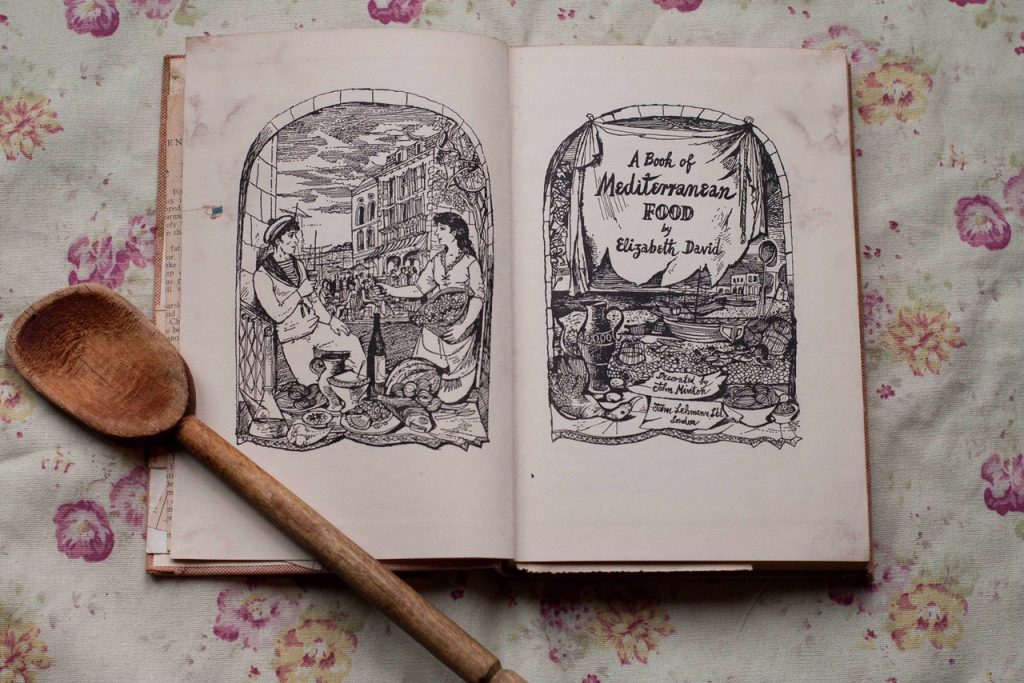 A Book of
Mediterranean
FOOD
by
Elizabeth David
Decorated by
John Minton
John Lehmann Ltd
London